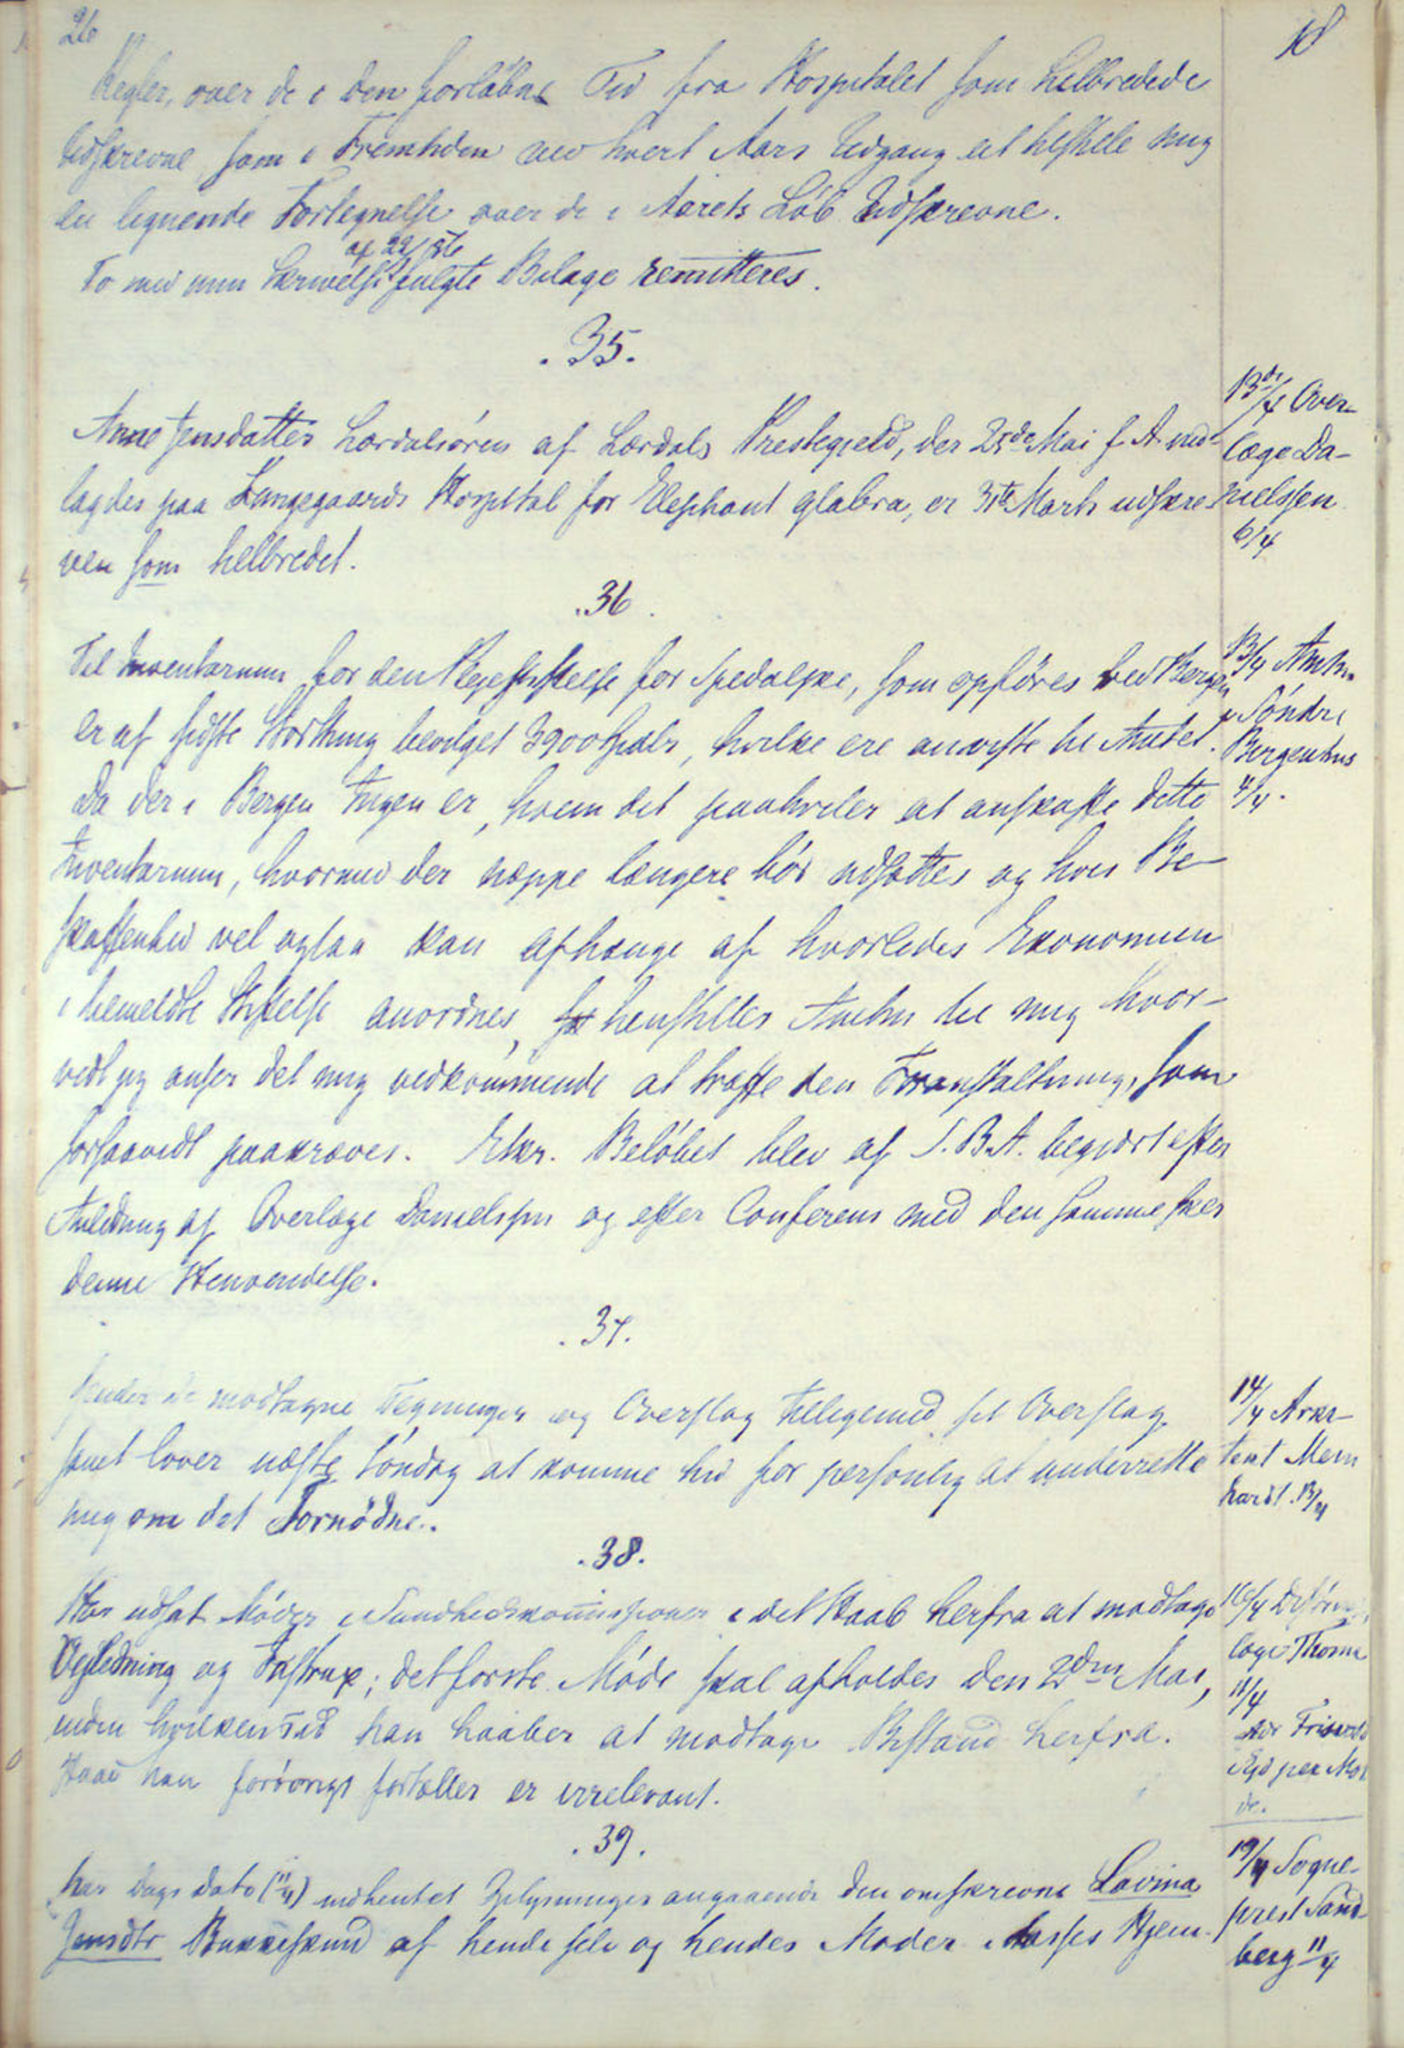 26
18
Regler, over de i den forløbne Tid fra Hospitalet som helbredede
udskrevne, som i Fremtiden ved hvert Aars Udgang at tilstille mig
en lignende Fortegnelse over de i Aarets Løb Udskrevne.
af 22/3 56
To med min Skrivelse fulgte Bilage remitteres.
.35.
Anne Jensdatter Lærdalsøren af Lærdals Prestegjeld, der 25de Mai f. A. ind-
lagdes paa Lungegaards Hospital for Elephant glabra, er 31te Marts udskre-
ven som helbredet.
13de/4 Over-
læge Da-
nielssen
6/4
.36.
Til Inventarium for den Pleiestiftelse for Spedalske, som opføres ved Bergen
er af sidste Storthing bevilget 3900 Spdlr, hvilke ere anviste til Amtet.
Da der i Bergen Ingen er, hvem det paahviler at anskaffe dette
Inventarium, hvormed der neppe længere bør udsættes og hvis Be-
skaffenhed vel ogsaa kan afhænge af hvorledes Ekonomien
i bemeldte Stiftelse anordnes, henstilles Amtm til mig hvor-
vidt jeg anser det mig vedkommende at træffe den Foranstaltning, som
forsaavidt paakræves. Ekr. Beløbet blev af S.B.A. begjært efter
Anledning af Overlæge Danielssen og efter Conferens med den samme sker
denne Henvendelse.
13/4 Amtm.
i Søndre
Bergenhus
11/4.
.37.
Sender de modtagne Tegninger og Overslag tilligemed sit Overslag
samt lover næste Søndag at komme hid for personlig at underrette
mig om det Fornødne.
14/4 Arki-
tekt Mein
hardt. 13/4
.38.
Har udsat Møder i Sundhedskommissionen i det Haab herfra at modtage
Vejledning og Instrux; det første Møde skal afholdes den 2den Mai,
inden hvilken Tid han haaber at modtage Bistand herfra.
Hvad han forøvrigt fortæller er irrelevant.
16/4 Distrikts
læge Thome
11/4
.39.
Har Dags Dato (11/4) indhentet Oplysninger angaaende den omskrevne Lavina
Jensdtr Bukkeskind af hende selv og hendes Moder Hjem-
19/4 Sogne-
prest Sand-
berg 11/4